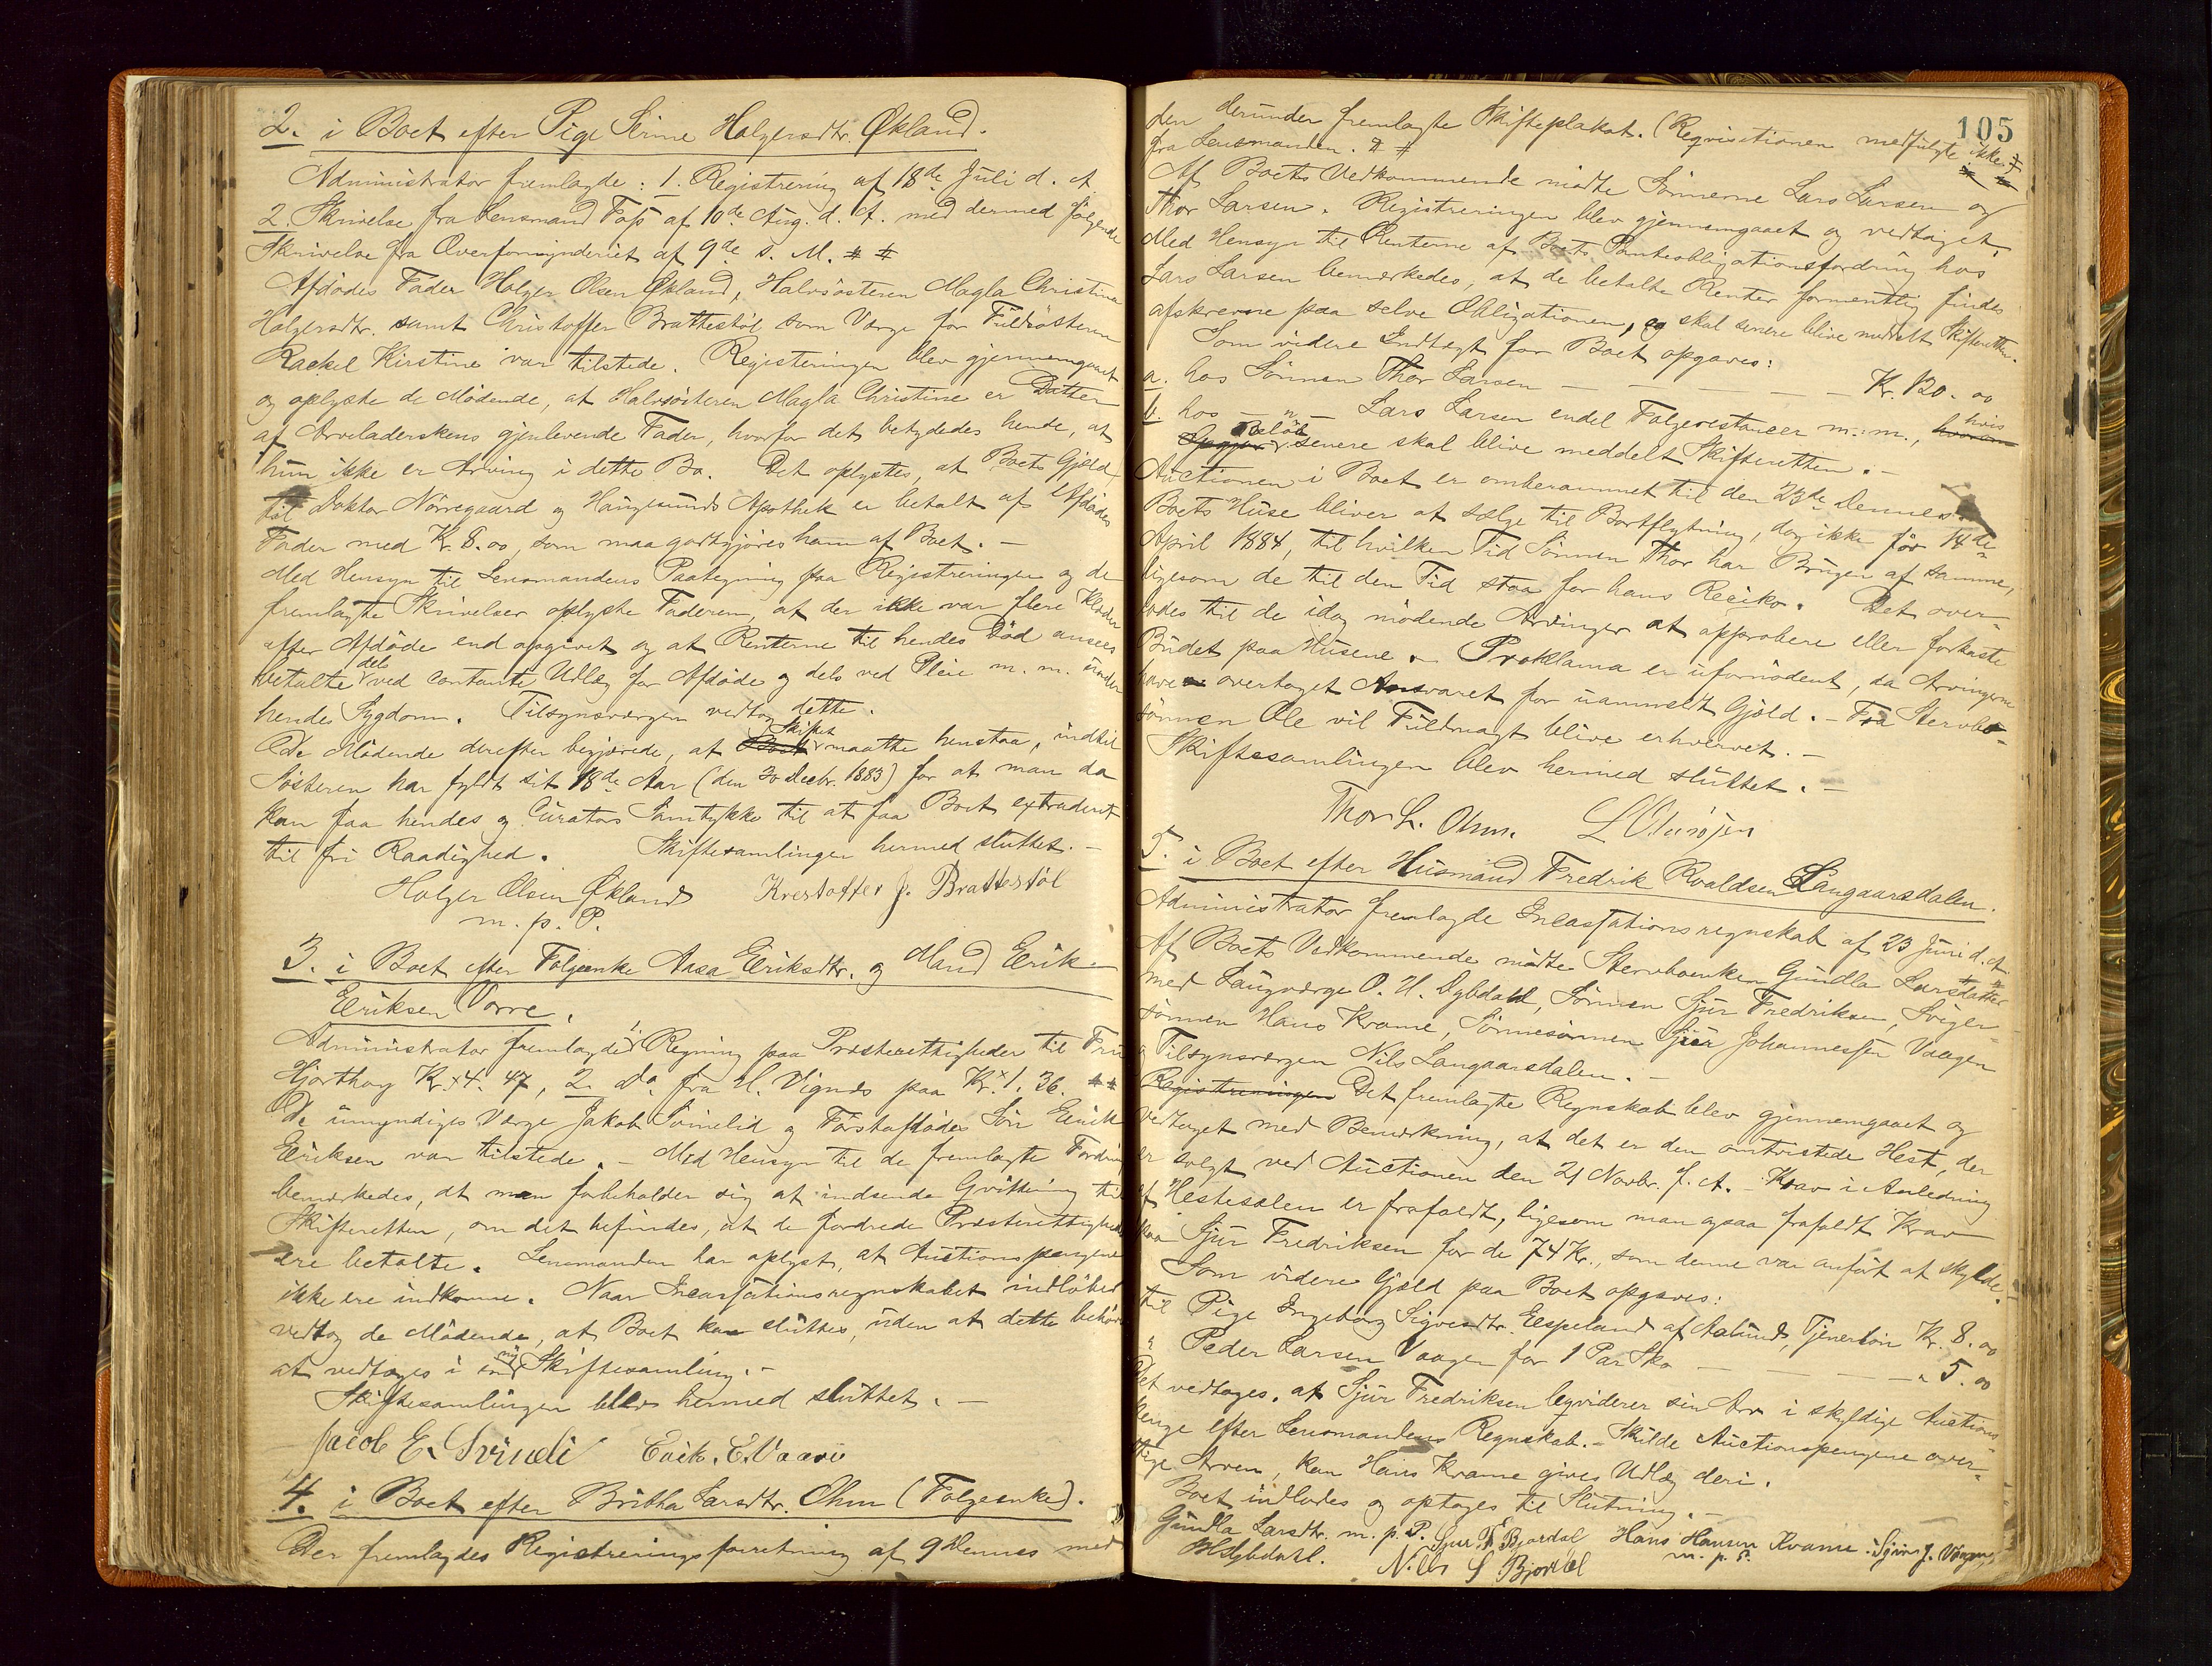 2. i Boet efter Pige Serine Holgersdtr. Økland.
Administrator fremlagde: 1. Registrering af 18de Juli d. A.
2. Skrivelse fra Lensmand Foss af 10de Aug. d. A. med dermed følgende
Skrivelse fra Overformynderiet af 9de s. M. # #
Afdødes Fader Holger Olsen Økland, Halvsøsteren Magla Christine
Holgersdtr. samt Christoffer Brattestøl som Værge for Fuldsøsteren
Rackel Kirstine var tilstede. Registeringen blev gjennemgaaet
og oplyste de Mødende, at Halvsøsteren Magla Christine er Datter
af Arveladerskens gjenlevende Fader, hvorfor det betydedes hende, at
hun ikke er Arving i dette Bo. Det oplystes, at Boets Gjæld
til Doktor Nørregaard og Haugesunds Apothek er betalt af Afdødes
Fader med Kr. 8.00, som maa godtgjøres ham af Boet. –
Med Hensyn til Lensmandens Paategning paa Registreringen og de
fremlagte Skrivelser oplyste Faderen, at der ikke var flere Klæder
efter Afdøde end opgivet og at Renterne til hendes Død ansees
betalte dels ved contante Udlæg for Afdøde og dels ved Pleie m. m. under
hendes Sygdom. Tilsynsværgen vedtog dette.
De Mødende derefter begjærede, at Skiftet maatte henstaa, indtil
Søsteren har fyldt sit 18de Aar (den 30 Decbr. 1883) for at man da
kan faa hendes og Curators Samtykke til at faa Boet extraderet
til fri Raadighed. Skiftesamlingen hermed sluttet. –
Holger Olsen Økland Krestoffer J. Brattestøl
m. p. P.
3. i Boet efter Folgeenke Aasa Eriksdtr. og Mand Erik
Eriksen Vorre.
Administrator fremlagde 1. Regning paa Præsterettigheder til Fru
Hjorthoy Kr. 4.47, 2. do. fra H. Vignæs paa Kr. 1.36. # #
De umyndiges Værge Jakob Svinelid og Førstafdødes Søn Erik
Eriksen var tilstede. – Med Hensyn til de fremlagte Fordring
bemærkedes, at man forbeholder sig at indsende Qvittering til
Skifteretten, om det befindes, at de fordrede Præsterettigheder
ere betalte. Lensmanden har oplyst, at Auctionspengene
ikke ere indkomne. Naar Incassationsregnskabet indløber
vedtog de Mødende, at Boet kan sluttes, uden at dette behøver
at vedtages i ny Skiftesamling. –
Skiftesamlingen blev hermed sluttet. –
Jacob E. Svineli Erik. E. Vaare
4. i Boet efter Britha Larsdtr. Ohm (Folgeenke).
Der fremlagdes Registreringsforretning af 9 Dennes med
105
den derunder fremlagte Skifteplakat. (Reqvisitionen medfulgte ikke #
fra Lensmanden. # #
Af Boets Vedkommende mødte Sønnerne Lars Larsen og
Thor Larsen. Registreringen blev gjennemgaaet og vedtaget
Med Hensyn til Renterne af Boets Panteobligationsfordring hos
Lars Larsen bemærkedes, at de betalte Renter formentlig findes
afskrevne paa selve Obligationen, og skal senere blive meddelt Skifteretten.
Som videre Indtægt for Boet opgaves:
a. hos Sønnen Thor Larsen – – – – Kr. 120.00
b. hos – " – Lars Larsen endel Folgerestancer m. m., hvis
Beløb senere skal blive meddelt Skifteretten. –
Auctionen i Boet er omberammet til den 23de Dennes.
Boets Huse bliver at sælge til Bortflytning, dog ikke før 14de
April 1884, til hvilken Tid Sønnen Thor har Brugen af samme,
ligesom de til den Tid staa for hans Reciko. Det over-
lodes til de idag mødende Arvinger at approbere eller forkaste
Budet paa Husene. – Proklama er ufornødent, da Arvingerne
have overtaget Ansvaret for uanmeldt Gjæld. – Fra Stervbo-
sønnen Ole vil Fuldmagt blive erhvervet. –
Skiftesamlingen blev hermed sluttet. –
Thor L. Ohm.
5. i Boet efter Husmand Fredrik Roaldsen Langaarsdalen.
Administrator fremlagde Incassationsregnskab af 23 Juni d. A.
Af Boets Vedkommende mødte Stervboenken Gundla Larsdatter
med Laugværge O. H. Dybdahl, Sønnen Sjur Fredriksen, Sviger-
sønnen Hans Krame, Sønnesønnen Sjur Johannessen Vaagen
og Tilsynsværgen Nils Langaarsdalen. –
Registreringen Det fremlagte Regnskab blev gjennemgaaet og
vedtaget med Bemærkning, at det er den omtvistede Hest, der
er solgt ved Auctionen den 21 Novbr. f. A. – Krav i Anledning
af Hestesalen er frafaldt, ligesom man ogsaa frafaldt Krav
paa Sjur Fredriksen for de 74 Kr., som denne var anført at skylde.
Som videre Gjæld paa Boet opgaves:
til Pige Ingeborg Sigvesdtr. Espeland af Aalund, Tjenerløn Kr. 8.00
" Peder Larsen Vaagen for 1 Par Sko – – – – " 5.00
Det vedtoges, at Sjur Fredriksen leqviderer sin Arv i skyldige Auctions-
penge efter Lensmandens Regnskab. – Skulde Auctionspengene over-
stige Arven, kan Hans Krame gives Udlæg deri.
Boet indlodes og optages til Slutning. –
Gundla Larsdtr. m. p. P. Sjur F. Bjordal Hans Hansen Kvame. Sjur J. Vaagen
m. p. P.
HDybdahl. Nils S Bjordal